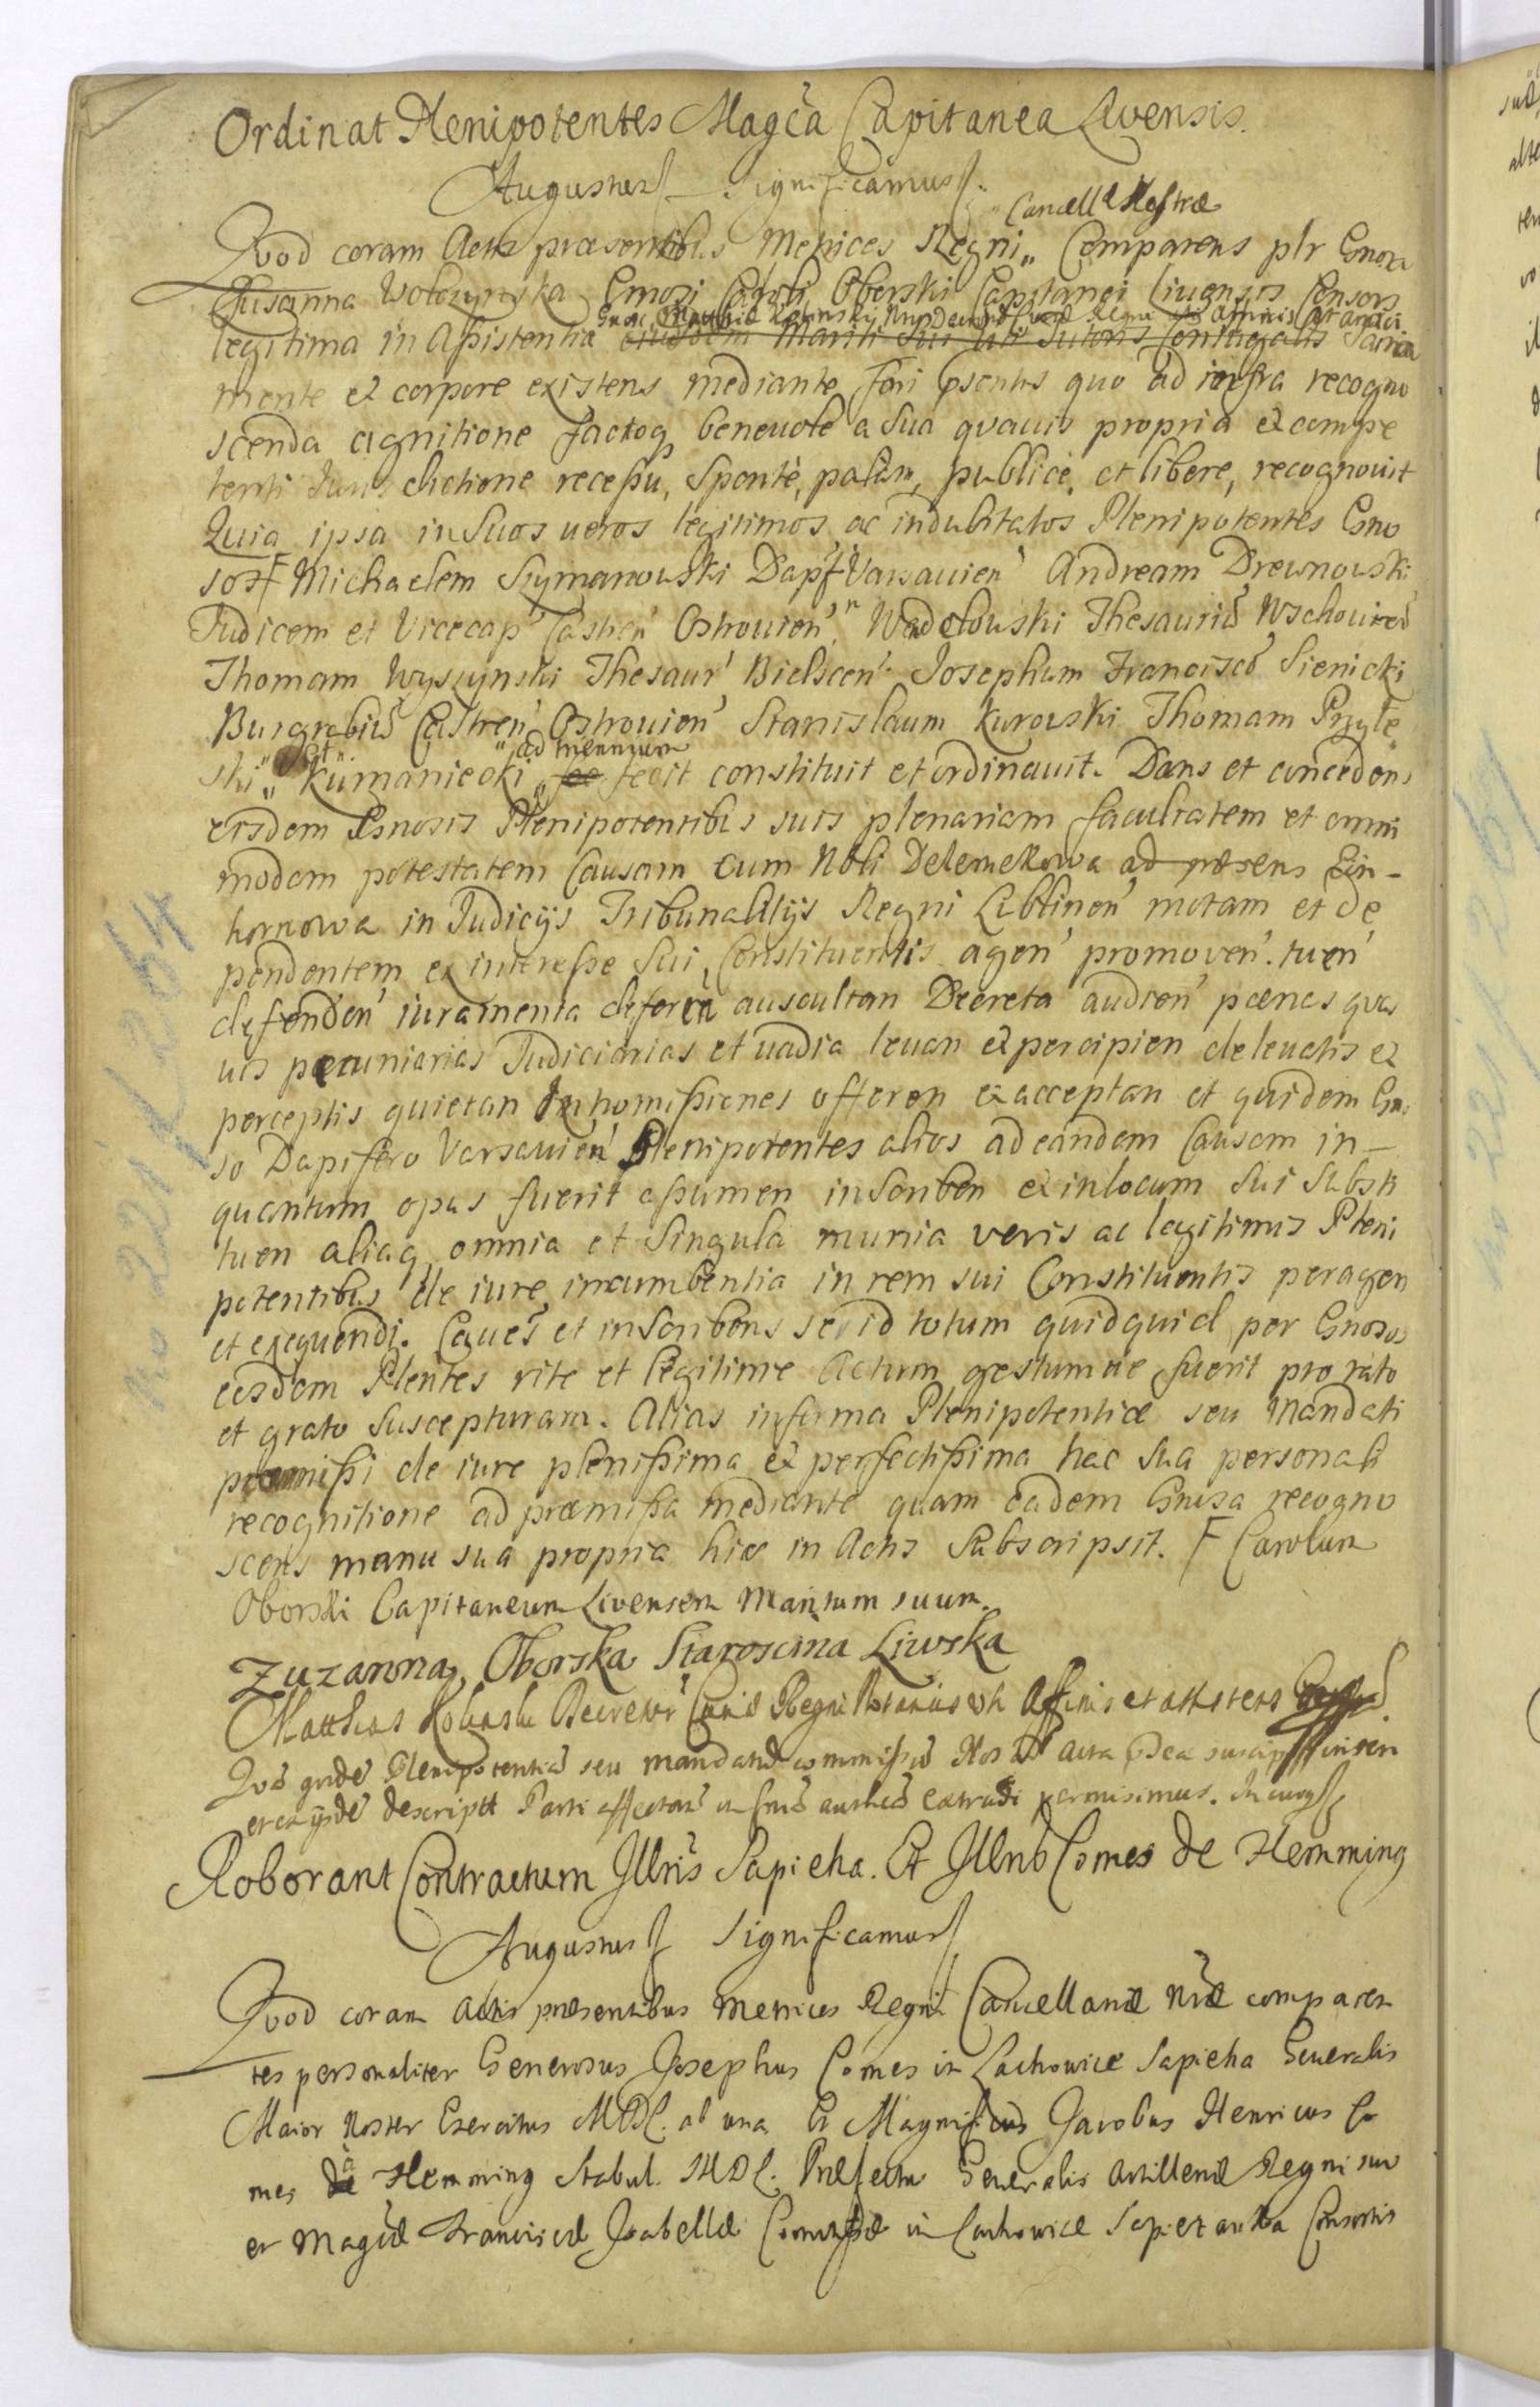 Ordinat Plenipotentes Magca Capitanea Livensis.
Augustus Significamus
Cancellae Nostrae
Quod coram Actis praesentibus Metrices Regni Comparens plr Gnosa
Zusanna Wolczynska Gnosi Caroli Oborski Capitanei Livensis Consors
legitima in Assistentia eiusdem Mariti Sui Sana
mente et corpore existens mediante fori psentis quo ad infra recogno
scenda agnitione factoq benevole a Sua quavis propria et compe
tenti Juris dictione recessu, Sponte, palam, publice, et libere, recognovit
Quia ipsa in Suos veros legitimos ac indubitatos Plenipotentes Gno
sos F Michaelem Szymanowski Dapf Varsavien Andream Drewnowski
Judicem et Vicecap Castren Ostrovien, Thesauriu Wschovien
Thomam Wyszynski Thesaur Bielscen Josephum Franciscu Sienicki
Burgrabiu Castren Ostrovien Stanislaum Kurowski Thomam Przyle
ski et Kumaniecki ad triennium fecit constituit et ordinavit. Dans et concedens
eisdem Gnosis Plenipotentibus suis plenariam facultatem et omni
modam potestatem Causam cum Nobli Delemekowa ad praesens Ein-
hornowa in Judicijs Tribunalitijs Regni Lublinen motam et de
pendentem ex interesse Sui Constituentis agen promoven. tuen
defenden iuramenta deferen auscultan Decreta audien paenas quas
vis pecuniarias Judiciarias et vadia levan et percipien de levatis et
perceptis quietan Inhomissiones offeren et acceptan et quidem Gno
so Dapifero Varsavien Plenipotentes alios ad eandem Causam in-
quantum opus fuerit assumen inscriben et in locum Sui Substi
tuen aliaq omnia et Singula munia veris ac legitimis Pleni
potentibus de iure incumbentia in rem sui Constituentis peragen
et exequendi. Caves et inscribens se id totum quidquid per Gnosos
eosdem Plentes rite et legitime Actum gestumve fuerit pro rato
et grato Suscepturam. Alias in forma Plenipotentiae seu Mandati
praemissi de iure plenissima et perfectissima hac Sua personali
recognitione ad praemissa mediante quam eadem Gnosa recogno
scens manu sua propria hic in Actis Subscripsit. F Carolum
Oborski Capitaneum Livensem Maritum suum.
Zuzanna Oborska Staroscina Liwska
Matthias Curiae Regni Notarius uti Affinis et assistens
Qua quide Plenipotentia seu mandatu Nos ad acta psea suscip inseri
et ex ijsde descriptt Parti affectan extradi permisimus. In cuius
Roborant Contractum Illris Sapieha. Et Illris Comes de Flemming
Augustus Significamus
Quod coram Actis praesentibus Metrices Regni Cancellariae Nrae comparen
tes personaliter Generosus Josephus Comes in Lachowice Sapieha Generalis
Maior Noster Exercitus MDL. ab una Et Magnificus Jacobus Henricus Co
mes a Flemming Stabul. MDL. Praefectus Generalis Artilleriae Regni suo
et Magcae Franciscae Isabellae Comitissae in Lachowice Consortis